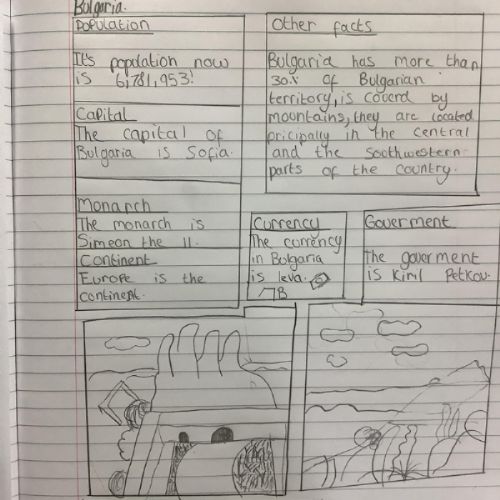 Bulgaria.
Population
It's population now
is 6,781,953!
Capital
The capital of
Bulgaria is Sofia.
Monarch
The monarch is
Simeon the II.
Continent
Europe is the
continent.
Other facts
Bulgaria has more than
30% of Bulgarian
territory, is coverd by
mountains, they are located
pricipally in the central
and the Soothwestern
parts of the country.
Currency
The currency
in Bulgaria
is leva.
Goverment
The goverment
is Kiril Petkov.